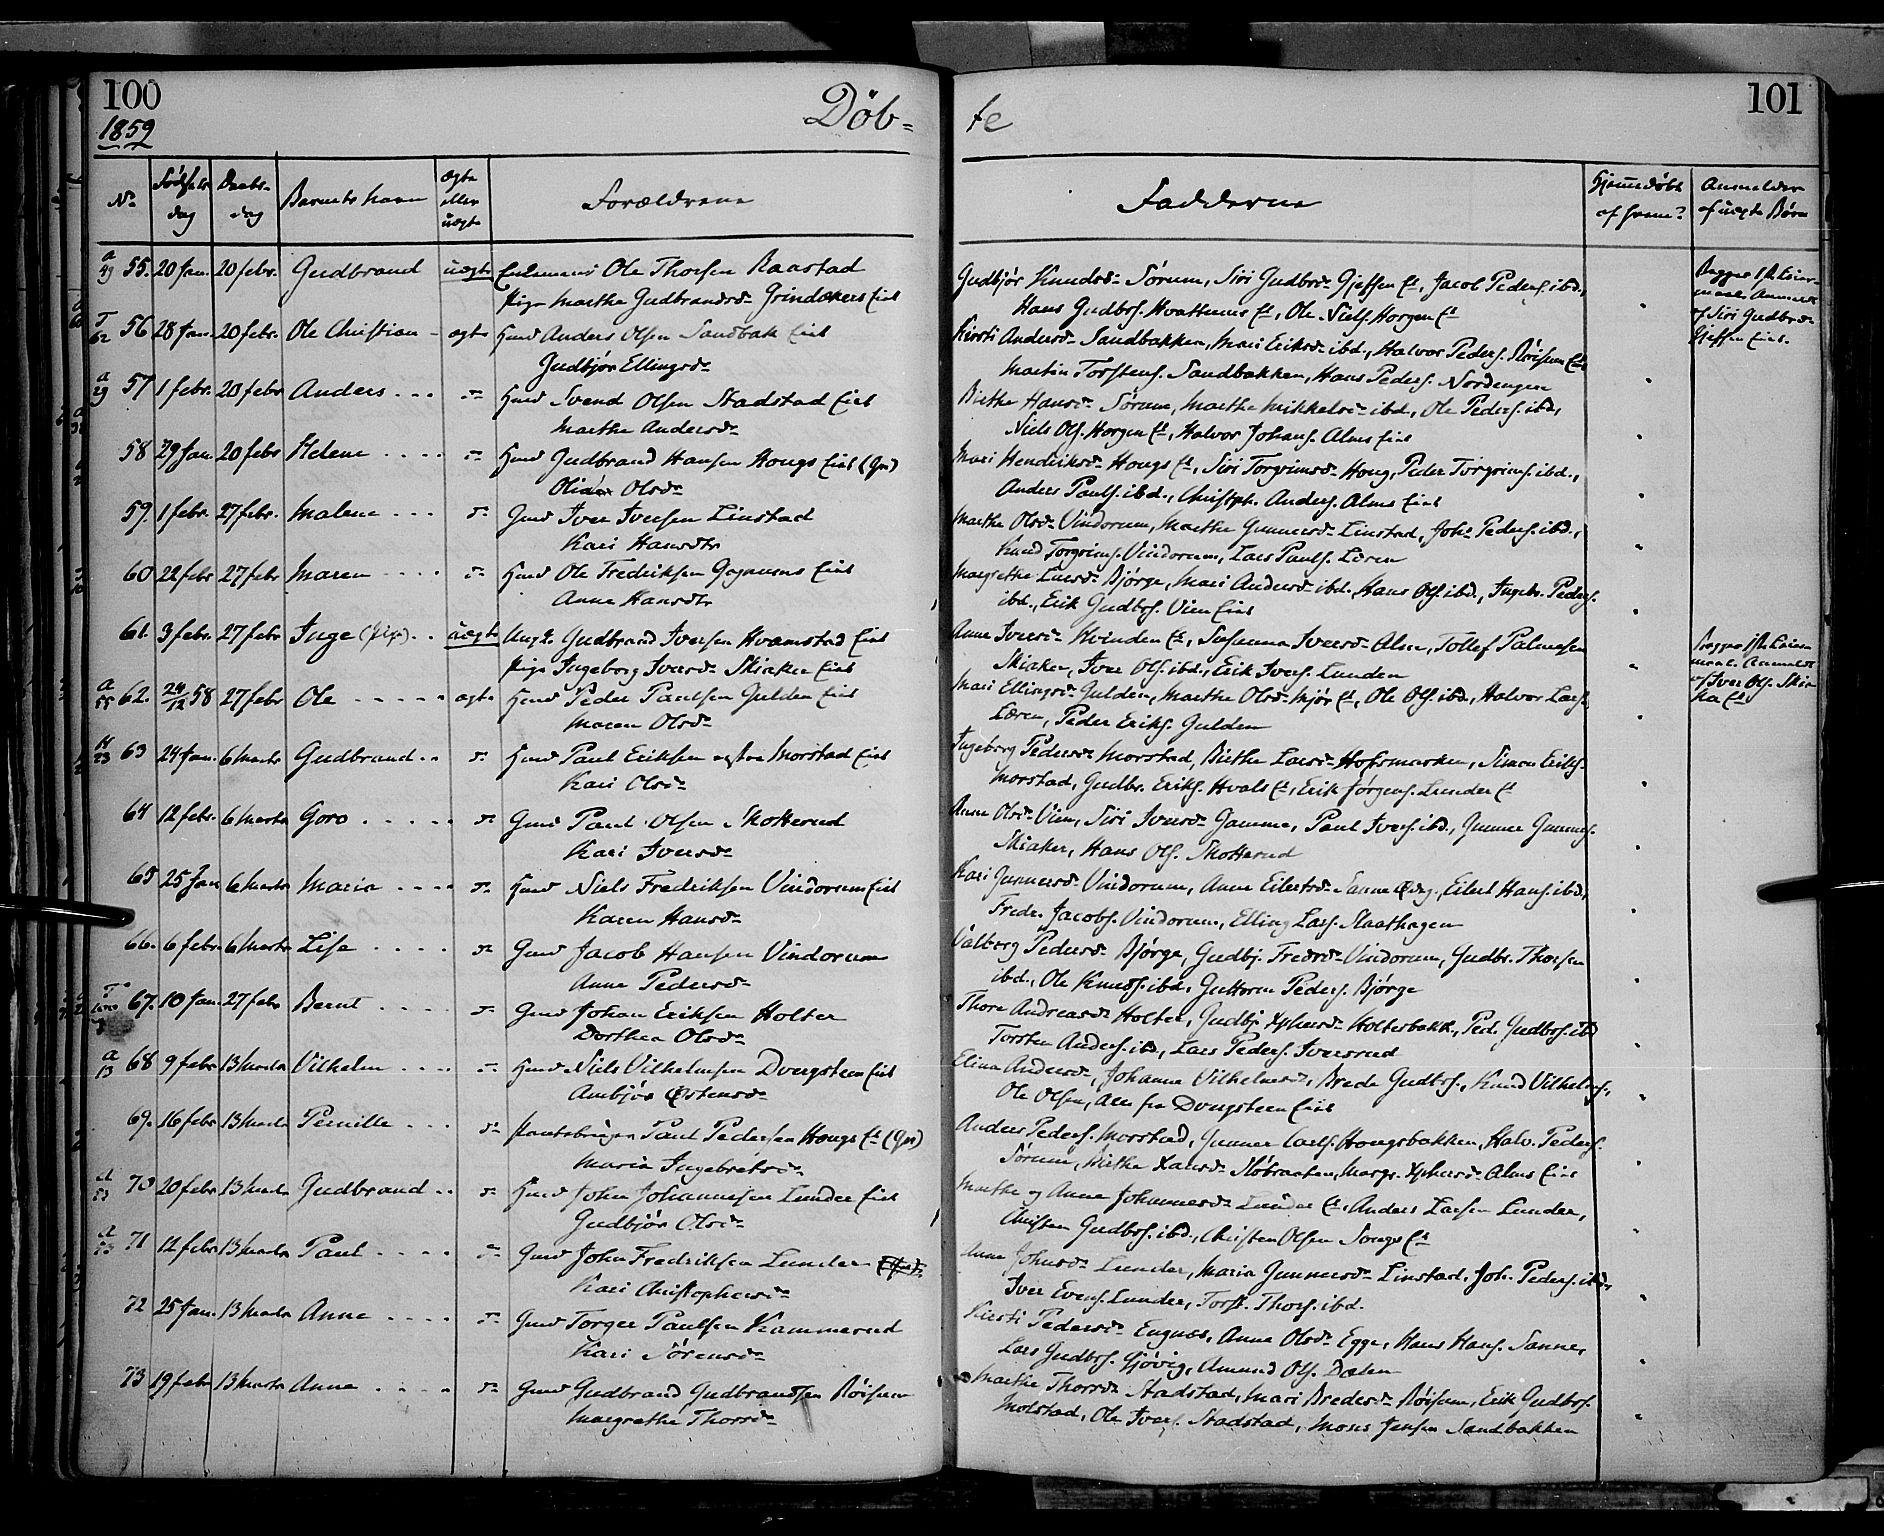 100
1859
Døb=
te
101
No
Fødsels dag
Daabs- dag
Barnets Navn
ægte eller uægte
Forældrene
Fadderne
Hjemmedøbt af hvem?
Anmelder af uægte Børn
55. 20 Jan. 20 febr. Gudbrand uægte Enkemand Ole Thorsen Raastad
Pige Marthe Gudbrandsd. Grindakers Eiet
Gudbjør Knudsd. Sørum, Siri Gudbrd. Gjefsen Et, Jacob Peders. ibd.,
Hans Gudbrs. Hvattums Et, Ole Niels. Horgen Et
Begges 1ste Leier-
maal Anmeldt
af Siri Gudbrd.
Gjefsen Eiet.
56 28 Jan. 20 febr. Ole Christian ægte Hmd Anders Olsen Sandbak Eiet
Gudbjør Ellingsd.
Kirsti Andersd. Sandbakken, Mari Eriksd. ibd., Halvor Peders. Røisum Et,
Martin Torstens. Sandbakken, Hans Peders. Nordengen
57 1 febr. 20 febr Anders Hmd Svend Olsen Stadstad Eiet
Marthe Andersd.
Birthe Hansd. Sørum, Marthe Mikkelsd. ibd., Ole Peders. ibd.,
Niels Ols. Horgen Et, Halvor Johans. Alms Eiet
58 29 Jan. 20 febr Helene Hmd Gudbrand Hansen Hougs Eiet (Gr)
Olsd.
Mari Hendriksd. Hougs Et, Siri Torgrimsd. Houg, Peder Torgrims. ibd.,
Anders Pauls. ibd., Christph. Anders. Alms Eiet
59. 1 febr. 27 febr. Malene Gmd Iver Iversen Linstad
Kari Hansdtr
Marthe Olsd. Vindorum, Marthe Gunnersd. Linstad, Joh. Peders. ibd.,
Knud Torgrims. Vindorum, Lars Pauls. Løren
60 22 febr 27 febr Maren Hmd Ole Fredriksen Gagnums Eiet
Anne Hansdtr
Margrethe Larsd. Bjørge, Mari Andersd. ibd., Hans Ols. ibd., Ingebr. Peders.
ibd., Erik Gudbrs. Vien Eiet
61. 3 febr. 27 febr Inge (Pige) uægte Ungk. Gudbrand Iversen Hvamstad Eiet
Pige Ingeborg Iversd. Skiaker Eiet
Anne Iversd. Hvinden Et, Susanna Iversd. Alm, Tollef Palmesen
Skiaker, Iver Ols. ibd., Erik Ivers. Lunden
Begges 1ste Leier-
maal. Anmeldt
af Iver Ols. Skia-
ker Et
62. 24/12 58 27 febr Ole ægte Hmd Peder Paulsen Gulden Eiet
Maren Olsd.
Mari Ellingsd. Gulden, Marthe Olsd. Mjør Et, Ole Ols. ibd., Halvor Lars.
Løren, Peder Eriks. Gulden
63 24 Jan. 6 Marts Gudbrand Hmd Paul Eriksen vestre Morstad Eiet
Kari Olsd.
Ingeborg Pedersd. Morstad, Birthe Larsd. Hofsmarken, Simen Eriks.
Morstad, Gudbr. Eriks. Hvals Et, Erik Jørgens. Lunder Et
64 12 febr. 6 Marts Goro Gmd Paul Olsen Skotterud
Kari Iversd.
Anne Olsd. Vien, Siri Iversd. Gamme, Paul Ivers. ibd., Gunner Gunners.
Skiaker, Hans Ols. Skotterud
65 25 Jan 6 Marts Maria Hmd Niels Fredriksen Vindorum Eiet
Karen Hansd.
Kari Gunnersd. Vindorum, Anne Eilertsd. Sanne Qvrg, Eilert Hans. ibd.,
Fredr. Jacobs. Vindorum, Elling Lars. Staathagen
66. 6 febr. 6 Marts Lise Gmd Jacob Hansen Vindorum
Anne Pedersd.
Valborg Pedersd. Bjørge, Gudbj. Fredrd. Vindorum, Gudbr. Thorsen
ibd., Ole Knuds. ibd., Guttorm Peders. Bjørge
67. 10 Jan. 27 febr Bernt Gmd Johan Eriksen Holter
Dorthea Olsd.
Thore Andreasd. Holter, Gudbj. Xphersd. Holterbakk., Ped. Gudbrs. ibd
Torsten Anders. ibd., Lars Peders. Iversrud
68 9 febr 13 Marts Vilhelm Hmd Niels Vilhelmsen Dvergsteen Eiet
Ambjør Østensd.
Eline Andersd., Johanne Vilhelmsd., Brede Gudbrs., Knud Vilhelms.,
Ole Olsen, alle fra Dvergsteen Eiet
69. 16 febr 13 Marts Pernille Paul Pedersen Hougs Et (Gr)
Maria Ingebretsd.
Anders Peders. Morstad, Gunner Carls. Hougsbakken, Halv. Peders.
Sørum, Birthe Hansd. Sløbraaten, Margr. Xphersd. Alms Eiet
70 20 febr 13 Marts Gudbrand Hmd John Johannesen Lunder Eiet
Gudbjør Olsd.
Marthe og Anne Johannesd. Lunder Et, Anders Larsen Lunder,
Christen Gudbrs. ibd., Christen Olsen Songs Et
71 12 febr 13 Marts Paul Gmd John Fredriksen Lunder
Kari Christophersd.
Anne Johnsd. Lunder, Maria Gunnersd. Linstad, Joh. Peders. ibd.,
Iver Evens. Lunder, Torst. Thors. ibd.
72 25 Jan. 13 Marts Anne Gmd Torger Paulsen Kammerud
Kari Sørensd.
Kirsti Pedersd. Engnæs, Anne Olsd. Egge, Hans Hans. Sanne,
Lars Gudbrs. Gjøvig, Amund Ols. Dalen
73 19 febr 13 Marts Anne Gmd Gudbrand Gudbrandsen Røisum
Margrethe Thorsd.
Marthe Thorsd. Stadstad, Mari Bredesd. Røisum, Erik Gudbrs.
Molstad, Ole Ivers. Stadstad, Moses Jensen Sandbakken